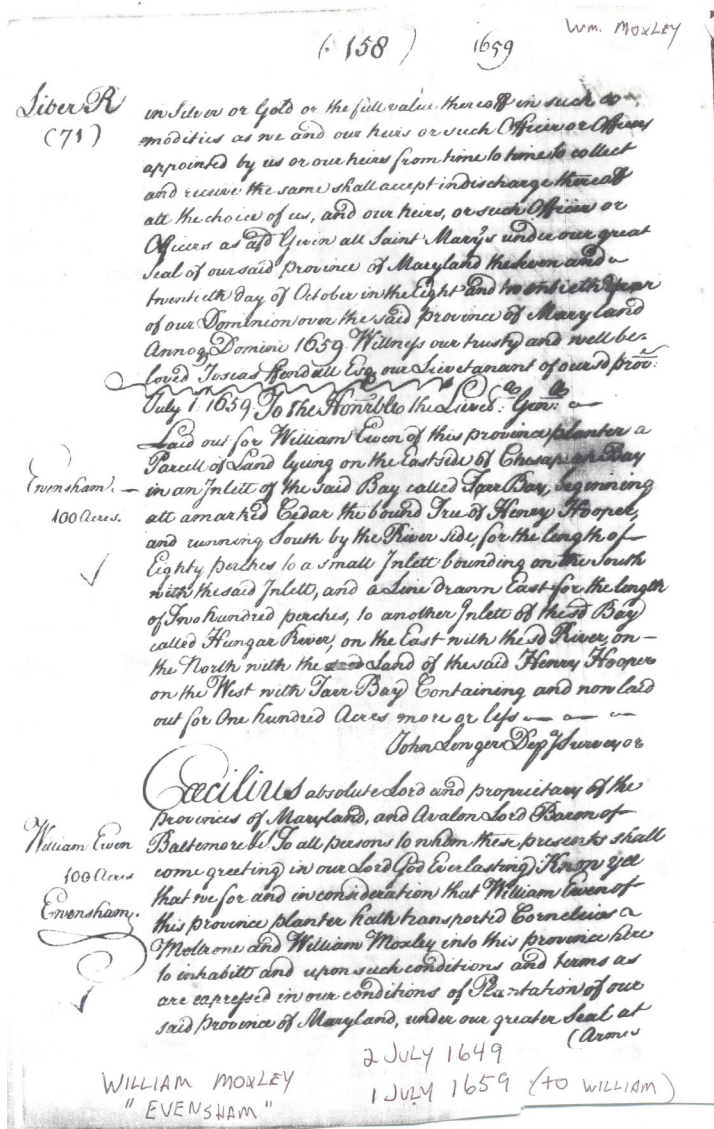 Wm. MOXLEY
(158)
1659
Liber R
(71)
in Silver or Gold or the full value thereoff in such co-
modities as we and our heirs or such Officer or Officers
appointed by us or our heirs from time to time to collect
and receive the same shall accept in discharge thereoff
att the choice of us, and our heirs, or such Officer or
Officers as afd Given att Saint Marys under our great
Seal of our said province of Maryland the seven and a
twentieth day of October in the Eight and twentieth year
of our Dominion over the said province of Maryland
Annoq Domini 1659. Wittness our trusty and well be-
loved Josias Fendall Esq. our Lievetanant of our sd prov:
July 1. 1659. To the Honrble the Lieved: Gen:
Evensham.
100 Acres.
Laid out for William Ewen of this province planter a
Parcell of Land lyeing on the East side of Chesapeak Bay
in an Inlett of the said Bay called Tarr Bay, beginning
att a marked Cedar the bound Tree of Henry Hooper,
and running South by the River side, for the length of
Eighty perches to a small Inlett bounding on the South
with the said Inlett, and a Line drawn East for the length
of Two hundred perches, to another Inlett of the sd Bay
called Hungar River, on the East with the sd River, on
the North with the Land of the said Henry Hooper
on the West with Tarr Bay Containing and now laid
out for One hundred Acres more or less
John Lenger Depy Surveyor
William Ewen
100 Acres
Evensham.
Cæcilius absolute Lord and proprietary of the
provinces of Maryland, and Avalon Lord Baron of
Baltemore &c To all persons to whom these presents shall
come greeting in our Lord God Everlasting Know yee
that we for and in consideration that William Ewen of
this province planter hath transported Cornelius a
Mollrone and William Moxley into this province here
to inhabitt and upon such conditions and terms as
are expressed in our conditions of Plantation of our
said province of Maryland, under our greater Seal at
(Armes
WILLIAM MOXLEY
"EVENSHAM"
2 JULY 1649
1 JULY 1659 (TO WILLIAM)